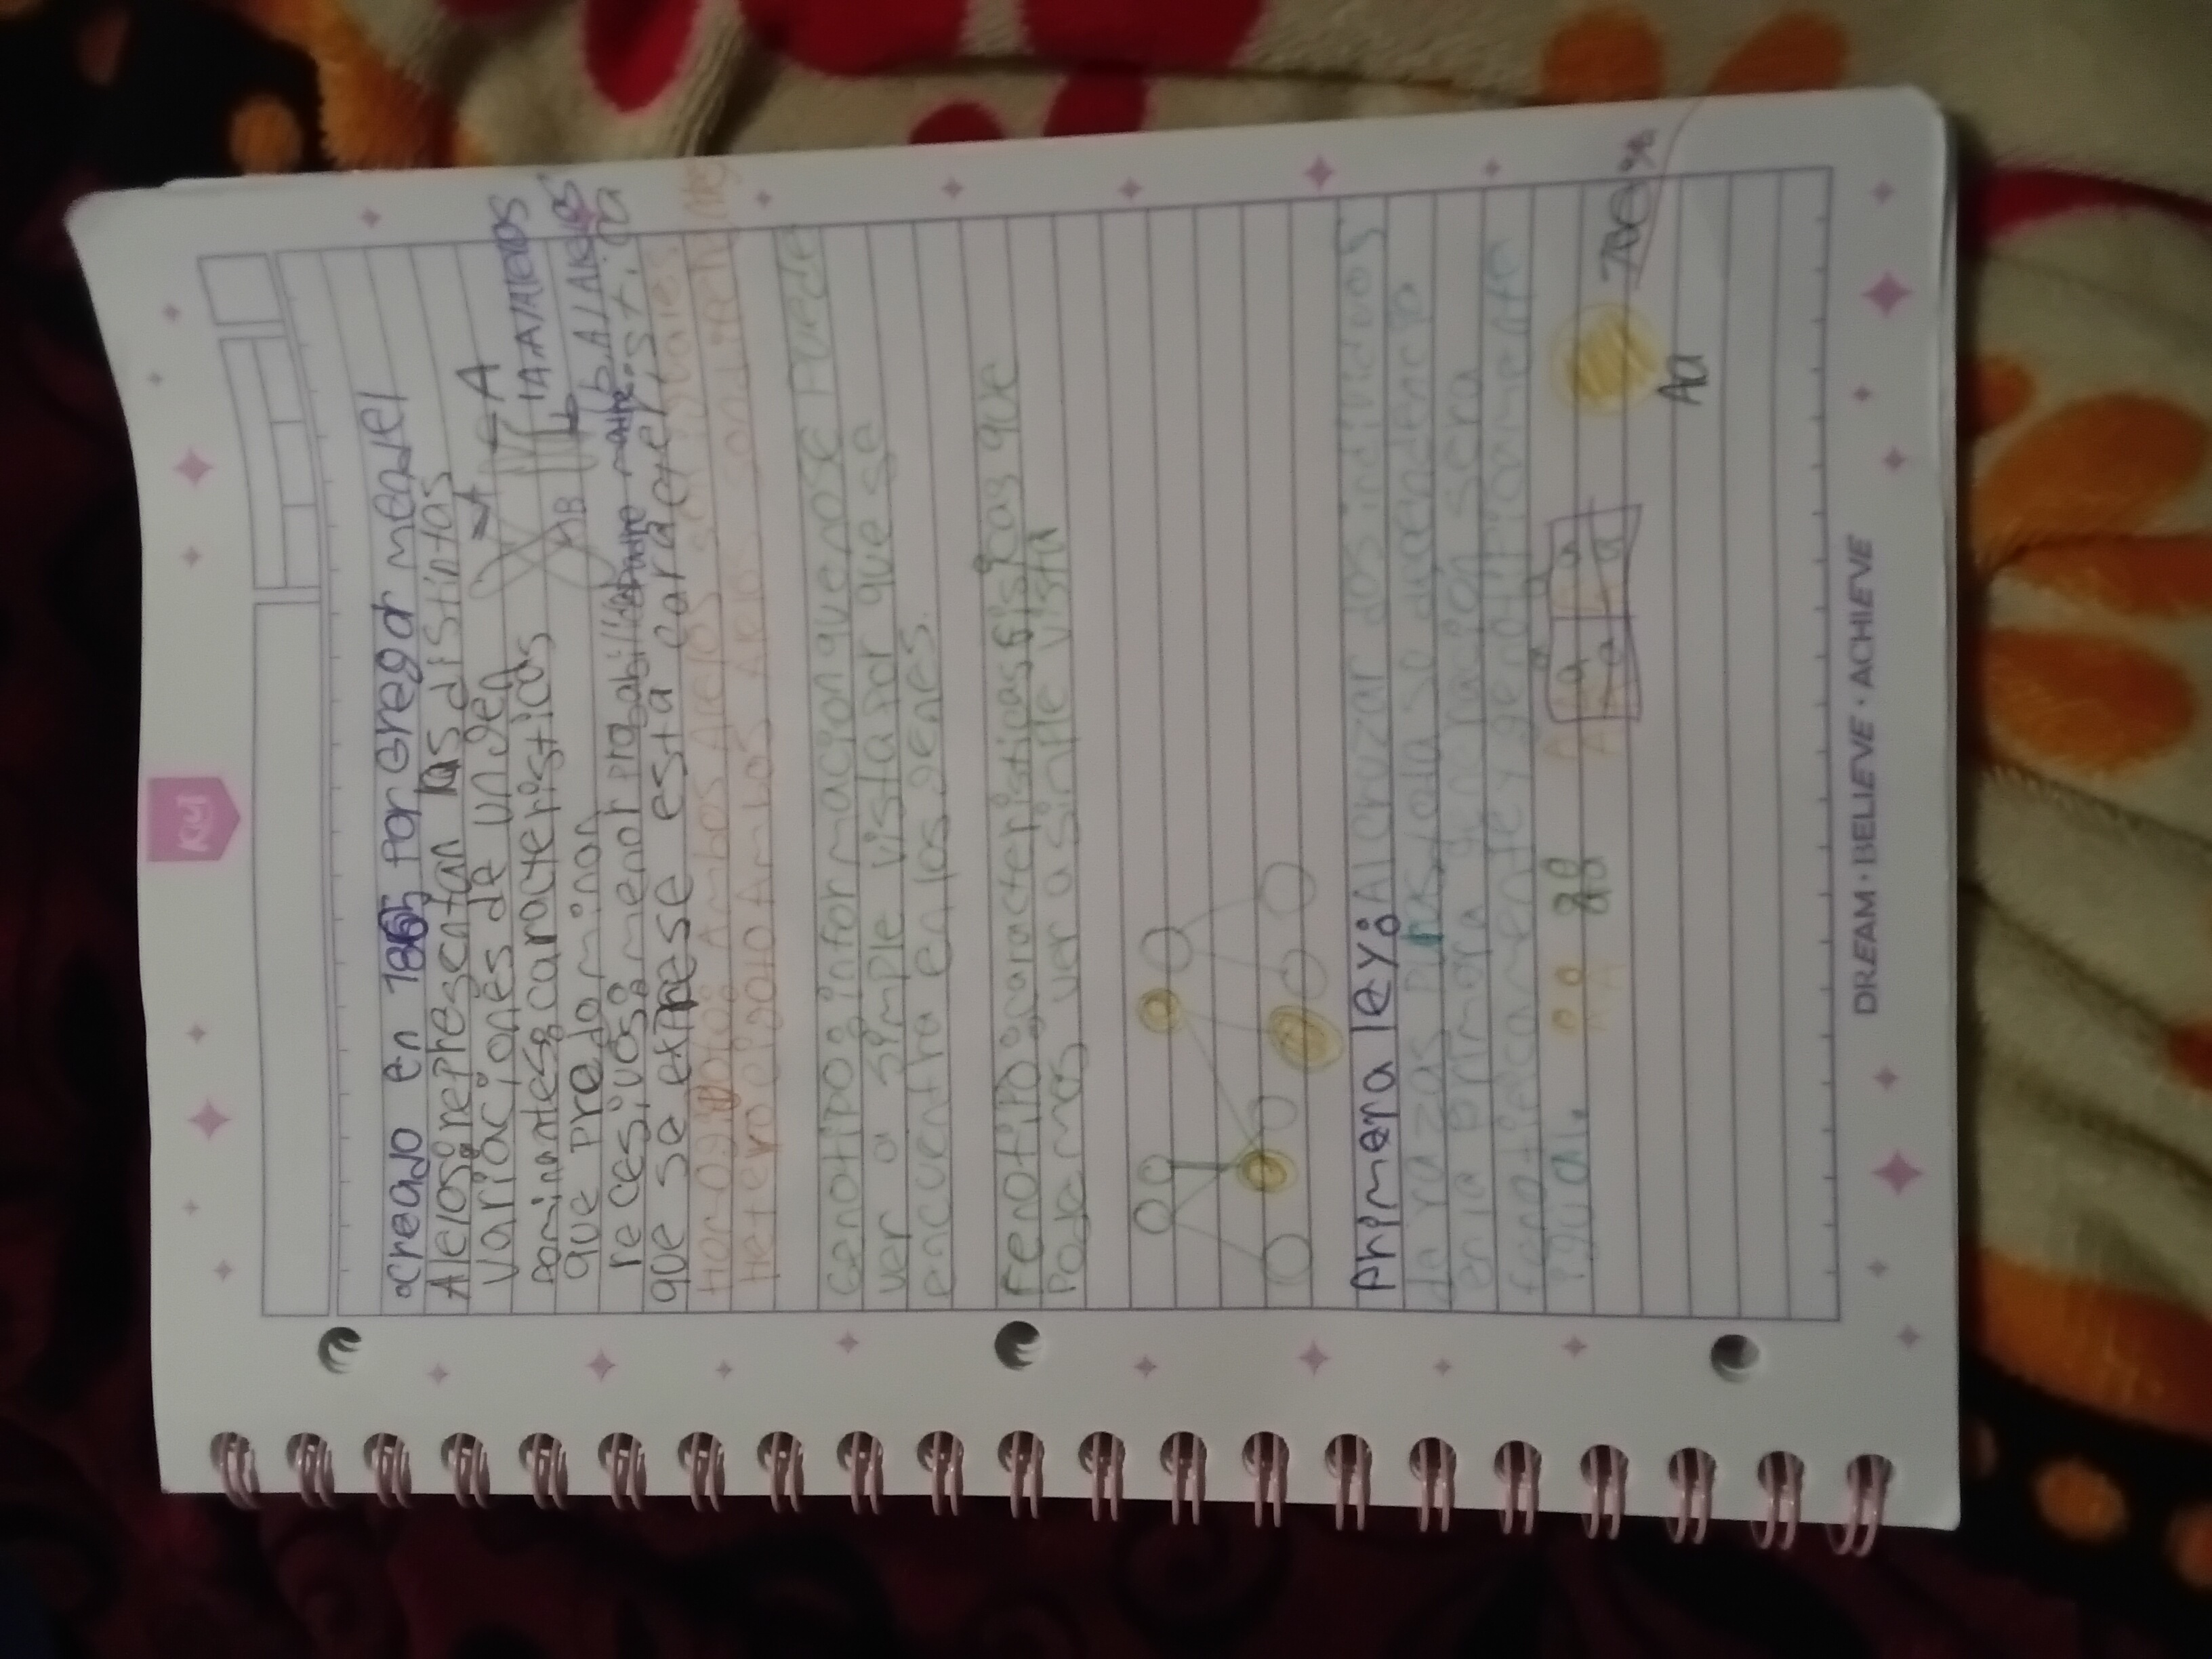 KM
creado en 1865 por Gregor mendel
Alelos: representan las distintas
variaciones de un gen
A
A
1A.A/Alelos
Dominantes: caracteristicas
B
b
1b.A/Alelos
que predominan
recesivos: menor probabilidad
que se exprese esta caracteristica
Homocigoto: Ambos Alelos son iguales
Heterocigoto Ambos Alelos son
Genotipo: informacion que no se puede
ver a simple vista por que se
encuentra en los genes.
Fenotipo: caracteristicas fisicas que
Podemos ver a simple vista
Primera ley: Al cruzar dos individuos
de razas puras, ota su decendencia
en la primera generación sera
fenotificamente y genotipicamente
igual.
A A
a a
Aa
100%
DREAM • BELIEVE • ACHIEVE